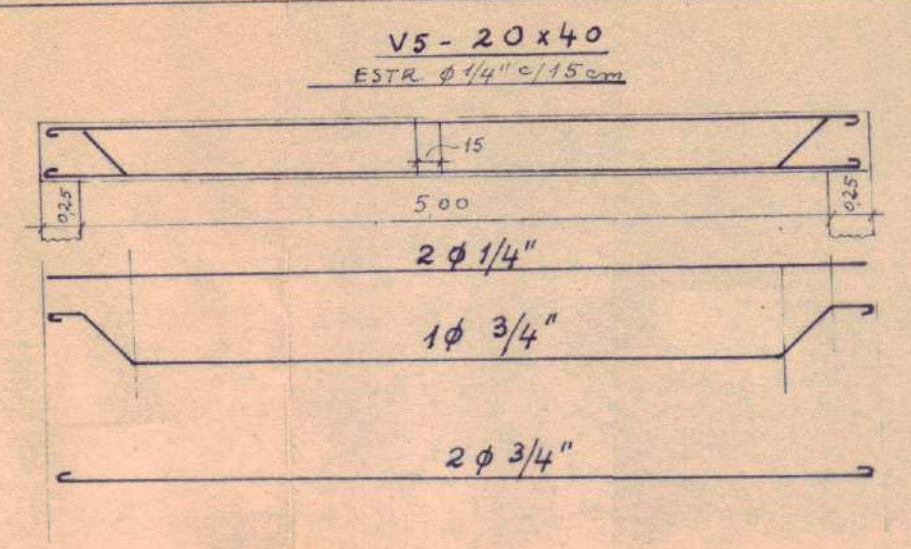 V5 - 20 x 40
ESTR. ϕ 1/4" c/15 cm
15
0,25
5,00
0,25
2 ϕ 1/4"
1 ϕ 3/4"
2 ϕ 3/4"